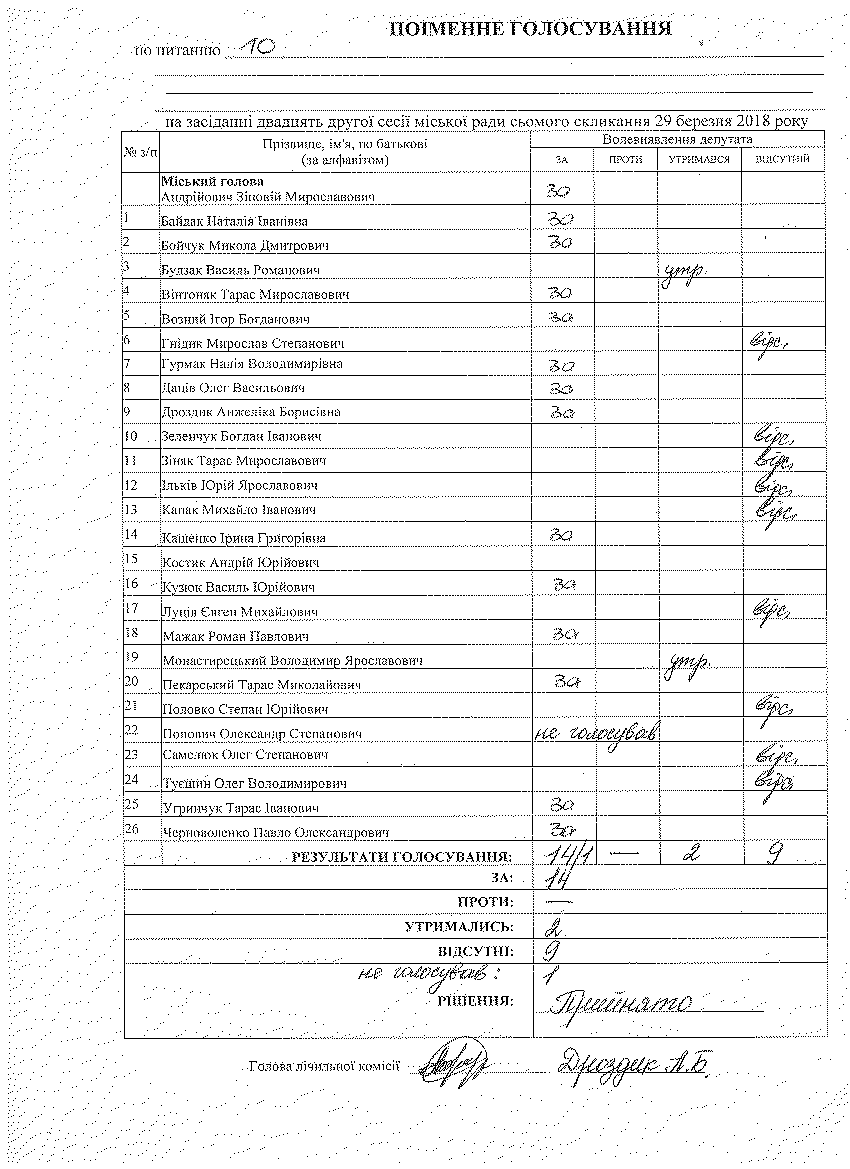 ПОІМЕННЕ ГОЛОСУВАННЯ
по питанню 10
на засіданні двадцять другої сесії міської ради сьомого скликання 29 березня 2018 року
№ з/п Прізвище, ім'я, по батькові (за алфавітом) Волевиявлення депутата
ЗА ПРОТИ УТРИМАВСЯ ВІДСУТНІЙ
Міський голова
Андрійович Зіновій Мирославович за
1 Байдак Наталія Іванівна за
2 Бойчук Микола Дмитрович за
3 Будзак Василь Романович утр.
4 Вінтоняк Тарас Мирославович за
5 Возний Ігор Богданович за
6 Гнідик Мирослав Степанович відс.
7 Гурмак Надія Володимирівна за
8 Даців Олег Васильович за
9 Дроздик Анжеліка Борисівна за
10 Зеленчук Богдан Іванович відс.
11 Зіняк Тарас Мирославович відс.
12 Ільків Юрій Ярославович відс.
13 Капак Михайло Іванович відс.
14 Кащенко Ірина Григорівна за
15 Костик Андрій Юрійович
16 Кузюк Василь Юрійович за
17 Луців Євген Михайлович відс.
18 Мажак Роман Павлович за
19 Монастирецький Володимир Ярославович утр.
20 Пекарський Тарас Миколайович за
21 Половко Степан Юрійович відс.
22 Попович Олександр Степанович не голосував
23 Самелюк Олег Степанович відс.
24 Туєшин Олег Володимирович відс.
25 Угринчук Тарас Іванович за
26 Черноволенко Павло Олександрович за
РЕЗУЛЬТАТИ ГОЛОСУВАННЯ: 14/1 — 2 9
ЗА: 14
ПРОТИ: —
УТРИМАЛИСЬ: 2
ВІДСУТНІ: 9
не голосував: 1
РІШЕННЯ: Прийнято
Голова лічильної комісії Дроздик А.Б.